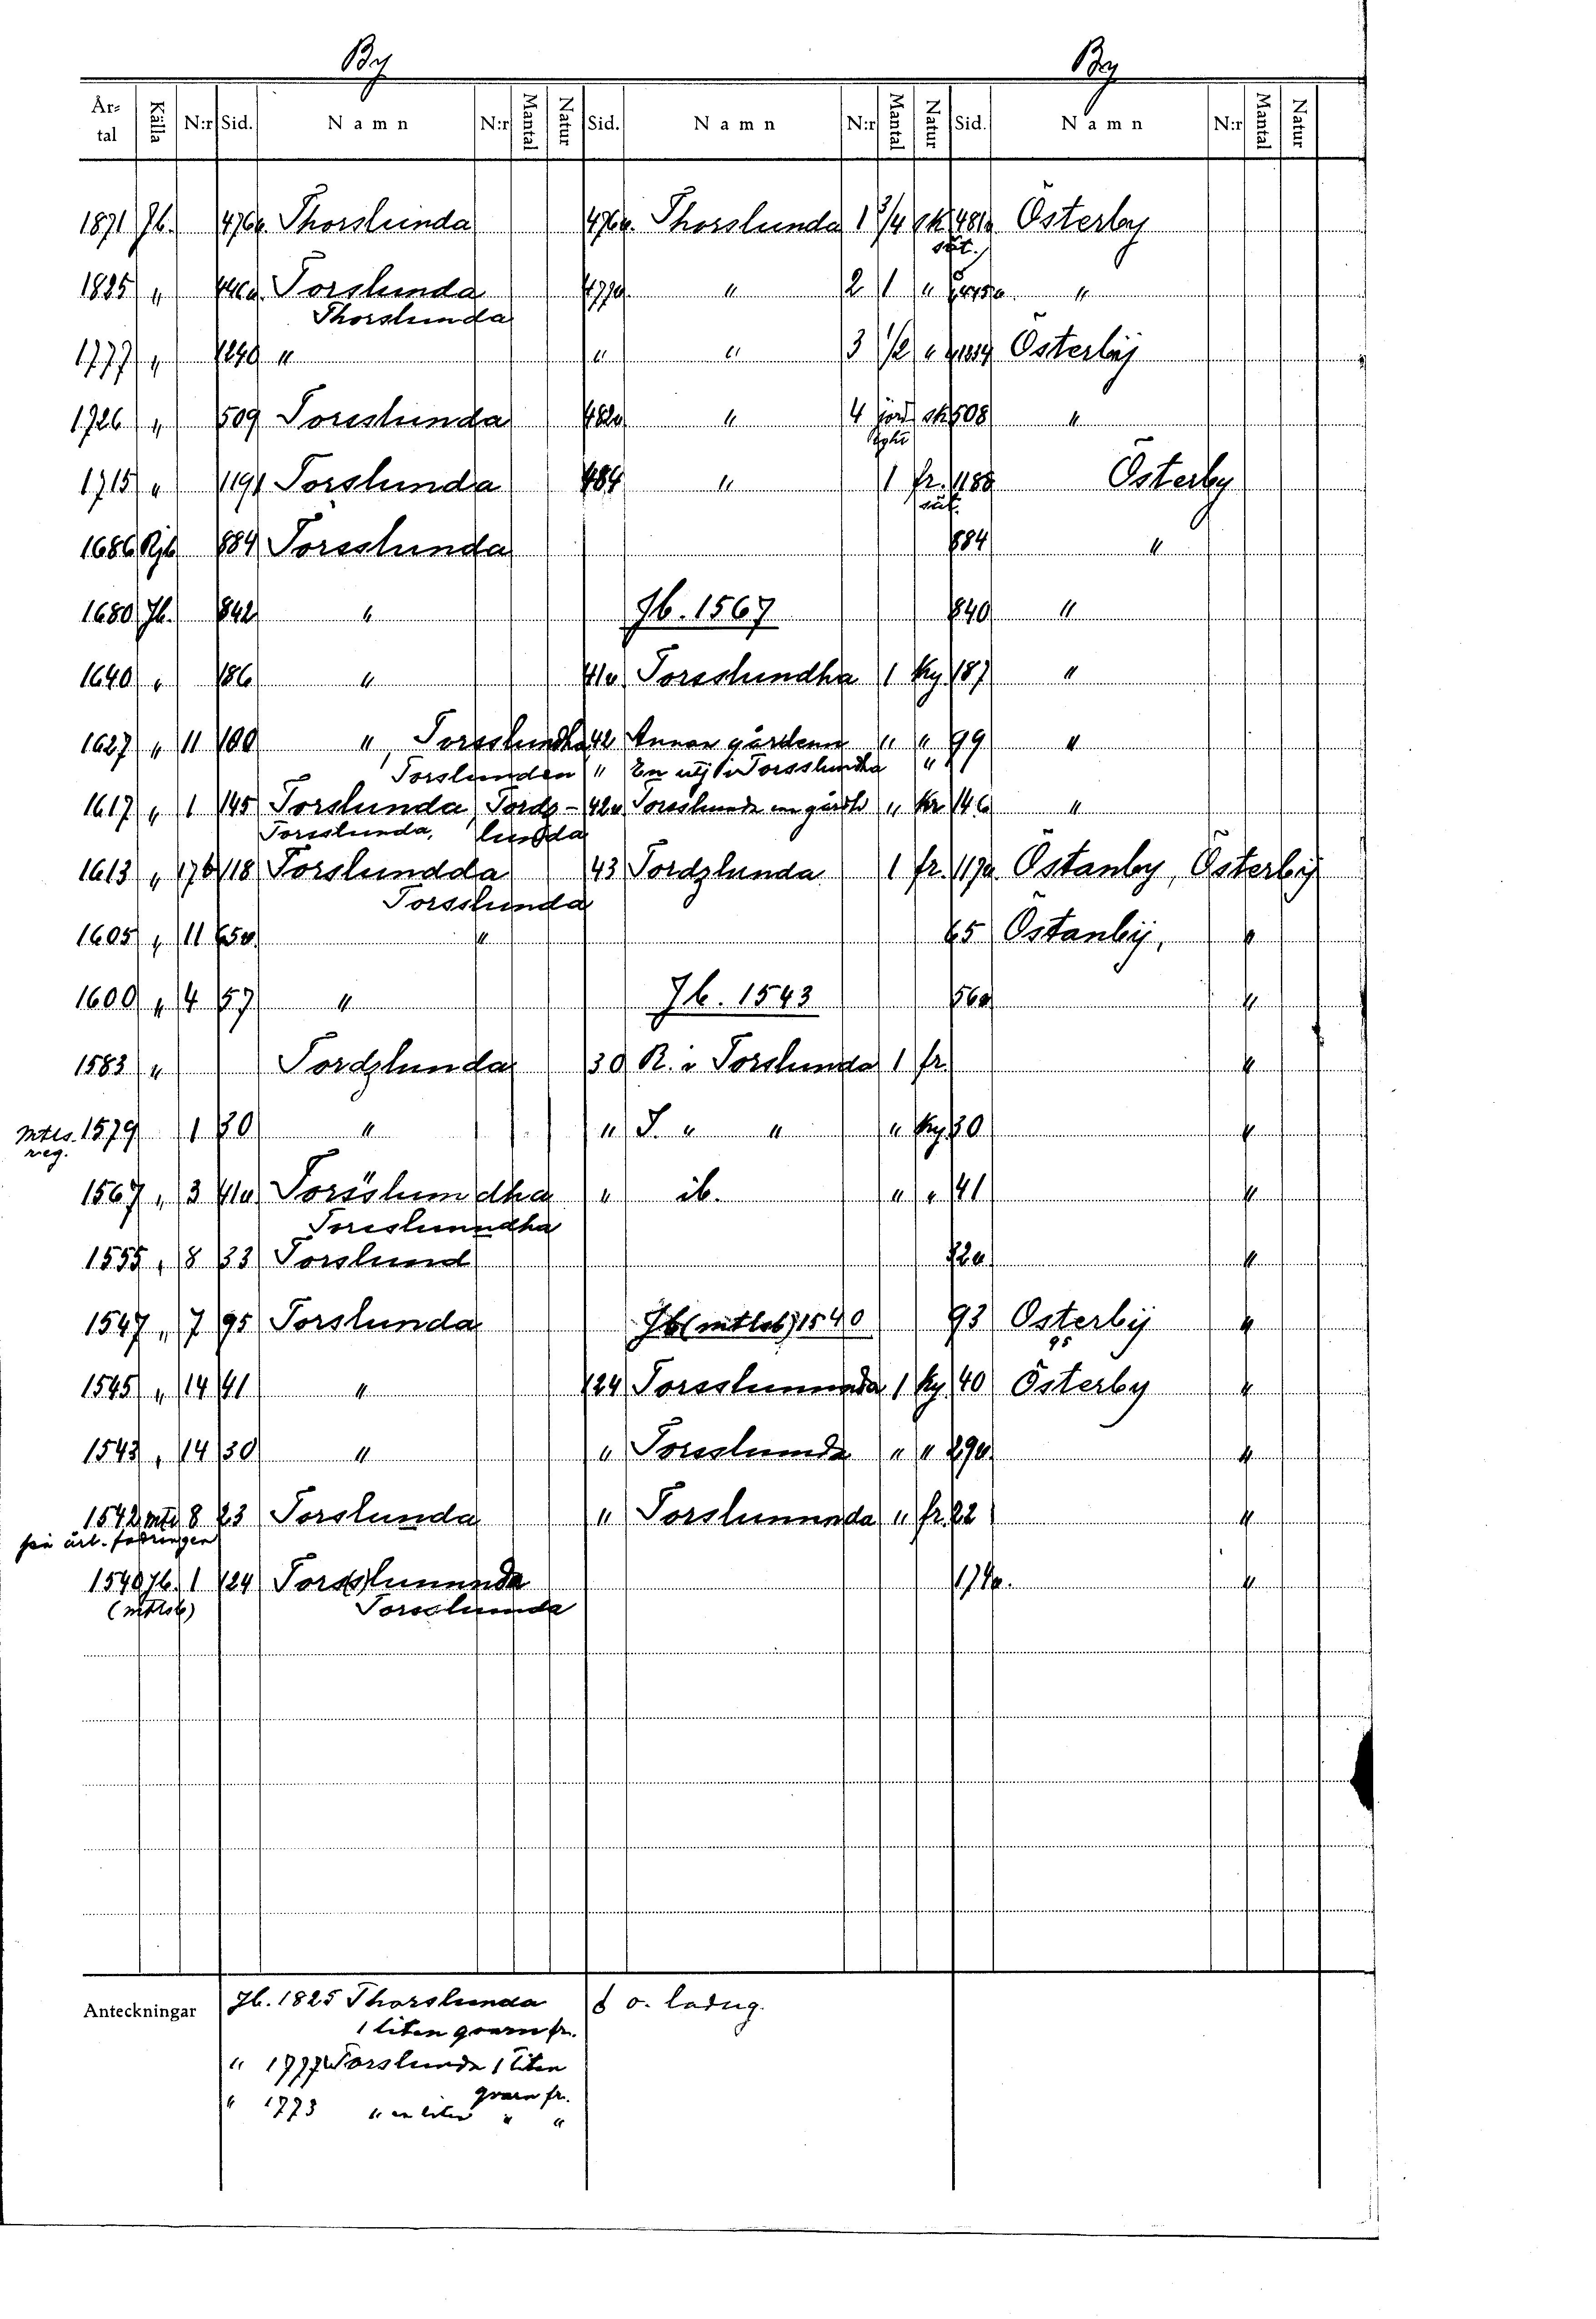 By By
År-tal Källa N:r Sid. Namn N:r Mantal Natur Sid. Namn N:r Mantal Natur Sid. Namn N:r Mantal Natur
1871 Jb. 476v. Thorslunda 476v. Thorslunda 1 3/4 sk 481v Österby
sät.
1825 " 446v. Torslunda 477v " 2 1 " 445v. "
Thorslunda
1777 " 1240 " " " 3 1/2 " 1234 Österbÿ
1726 " 509 Torsslunda 482v " 4 jord sk 508 "
lght
1715 " 1191 Torslunda 484 " 1 fr. 1188 Österby
sät.
1686 Rjb 884 Torsslunda 884 "
1680 Jb. 842 " Jb. 1567 840 "
1640 " 186 " 41v. Torsslundha 1 ky 187 "
1627 " 11 100 ", Torsslundha 42 Annan gårdenn " " 99 "
Torslunden " En utj i Torsslundha "
1617 " 1 145 Torslunda, Tordz- 42v Torsslunda en gårdh " kr 146 "
Torsslunda, lunda
1613 " 176 118 Torslundda 43 Tordzlunda 1 fr. 117v. Östanby, Österbÿ
Torsslunda
1605 " 11 65v. " 65 Östanbÿ, "
1600 " 4 57 " Jb. 1543 56v "
1583 " Tordzlunda 30 R. i Torslunda 1 fr. "
Mtls. 1579 1 30 " " J. " " " ky 30 "
reg.
1567 " 3 41v. Torsslundha " ib. " " 41 "
Torsslunndha
1555 " 8 33 Torslund 32v "
1547 " 7 95 Torslunda Jb (mtlsb) 1540 93 Osterbÿ "
95
1545 " 14 41 " 124 Torsslunnnda 1 ky 40 Österby "
1543 " 14 30 " " Torsslunnda " " 29v. "
1542 mtl 8 23 Torslunda " Torslunnnda " fr. 22 "
på årl. fodringen
1540 Jb. 1 124 Tors(s)lunnnda 174v. "
(mtlsb) Torsslunnda
Anteckningar Jb. 1825 Thorslunda o. ladug.
1 liten qvarn fr.
" 1777 Torslunda 1 liten
qvarn fr.
" 1773 " en liten " "